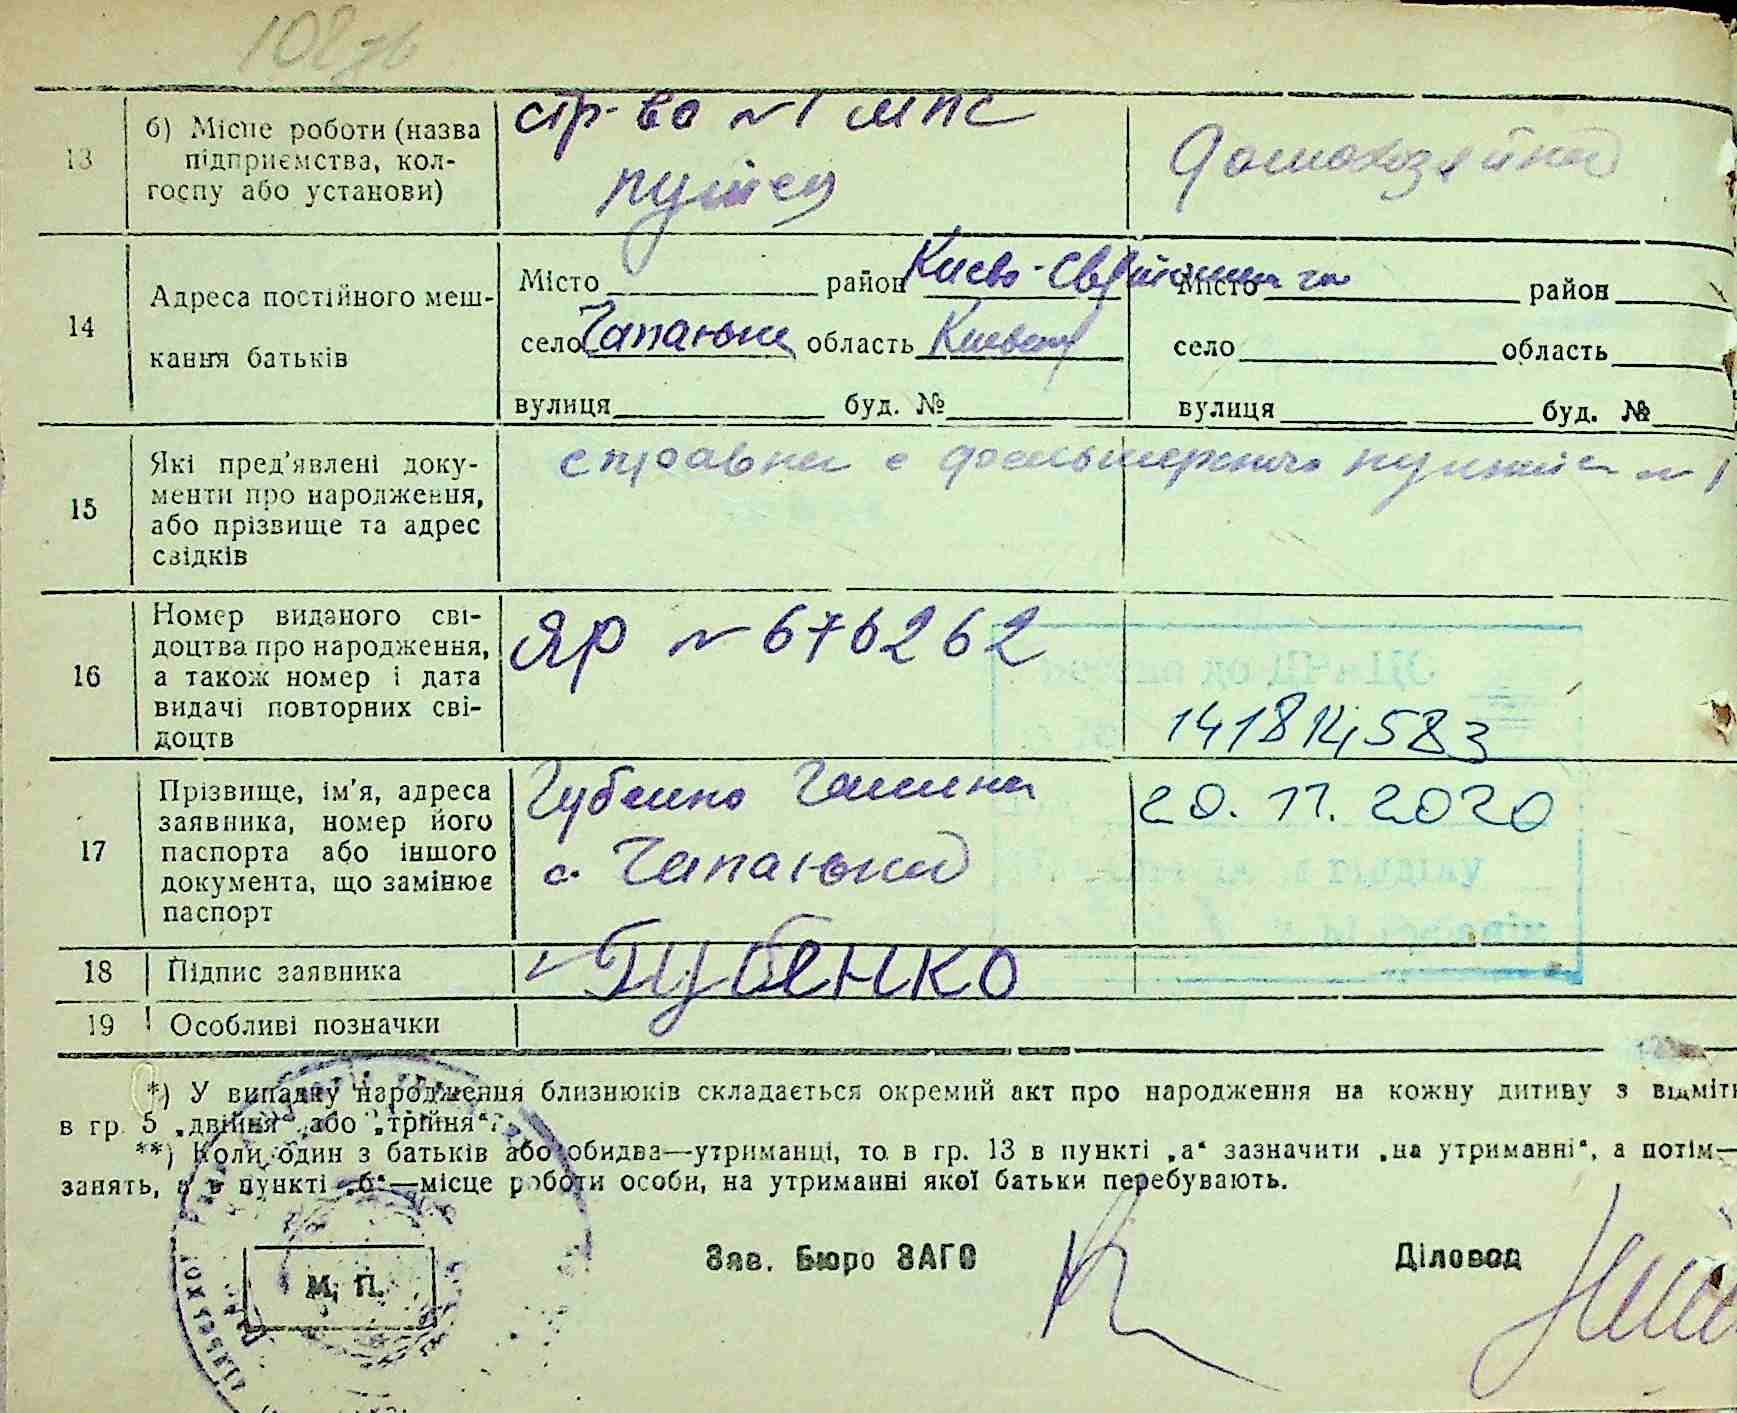 102зв
13
б) Місце роботи (назва підприємства, колгоспу або установи)
стр-во №1 МПС
домохозяйка
14
Адреса постійного меш-
кання батьків
Місто район Киево-Святошинский
Місто район
село Чапаювка область Киевск
село область
вулиця буд. №
вулиця буд. №
15
Які пред'явлені доку-
менти про народження,
або прізвище та адрес
свідків
справка с фельшерского пункта №1
16
Номер виданого сві-
доцтва про народження,
а також номер і дата
видачі повторних сві-
доцтв
ЯР №676262
583
17
Прізвище, ім'я, адреса
заявника, номер його
паспорта або іншого
документа, що замінює
паспорт
Губенко Галина
с. Чапаювка
20.11.2020
18
Підпис заявника
Губенко
19
Особливі позначки
*) У випадку народження близнюків складається окремий акт про народження на кожну дитину з відміт
в гр. 5 „двійня“ або „трійня“.
**) Коли один з батьків або обидва—утриманці, то в гр. 13 в пункті „а“ зазначити „на утриманні“, а потім—
занять, а в пункті „б“—місце роботи особи, на утриманні якої батьки перебувають.
Зав. Бюро ЗАГС
Діловод
М. П.